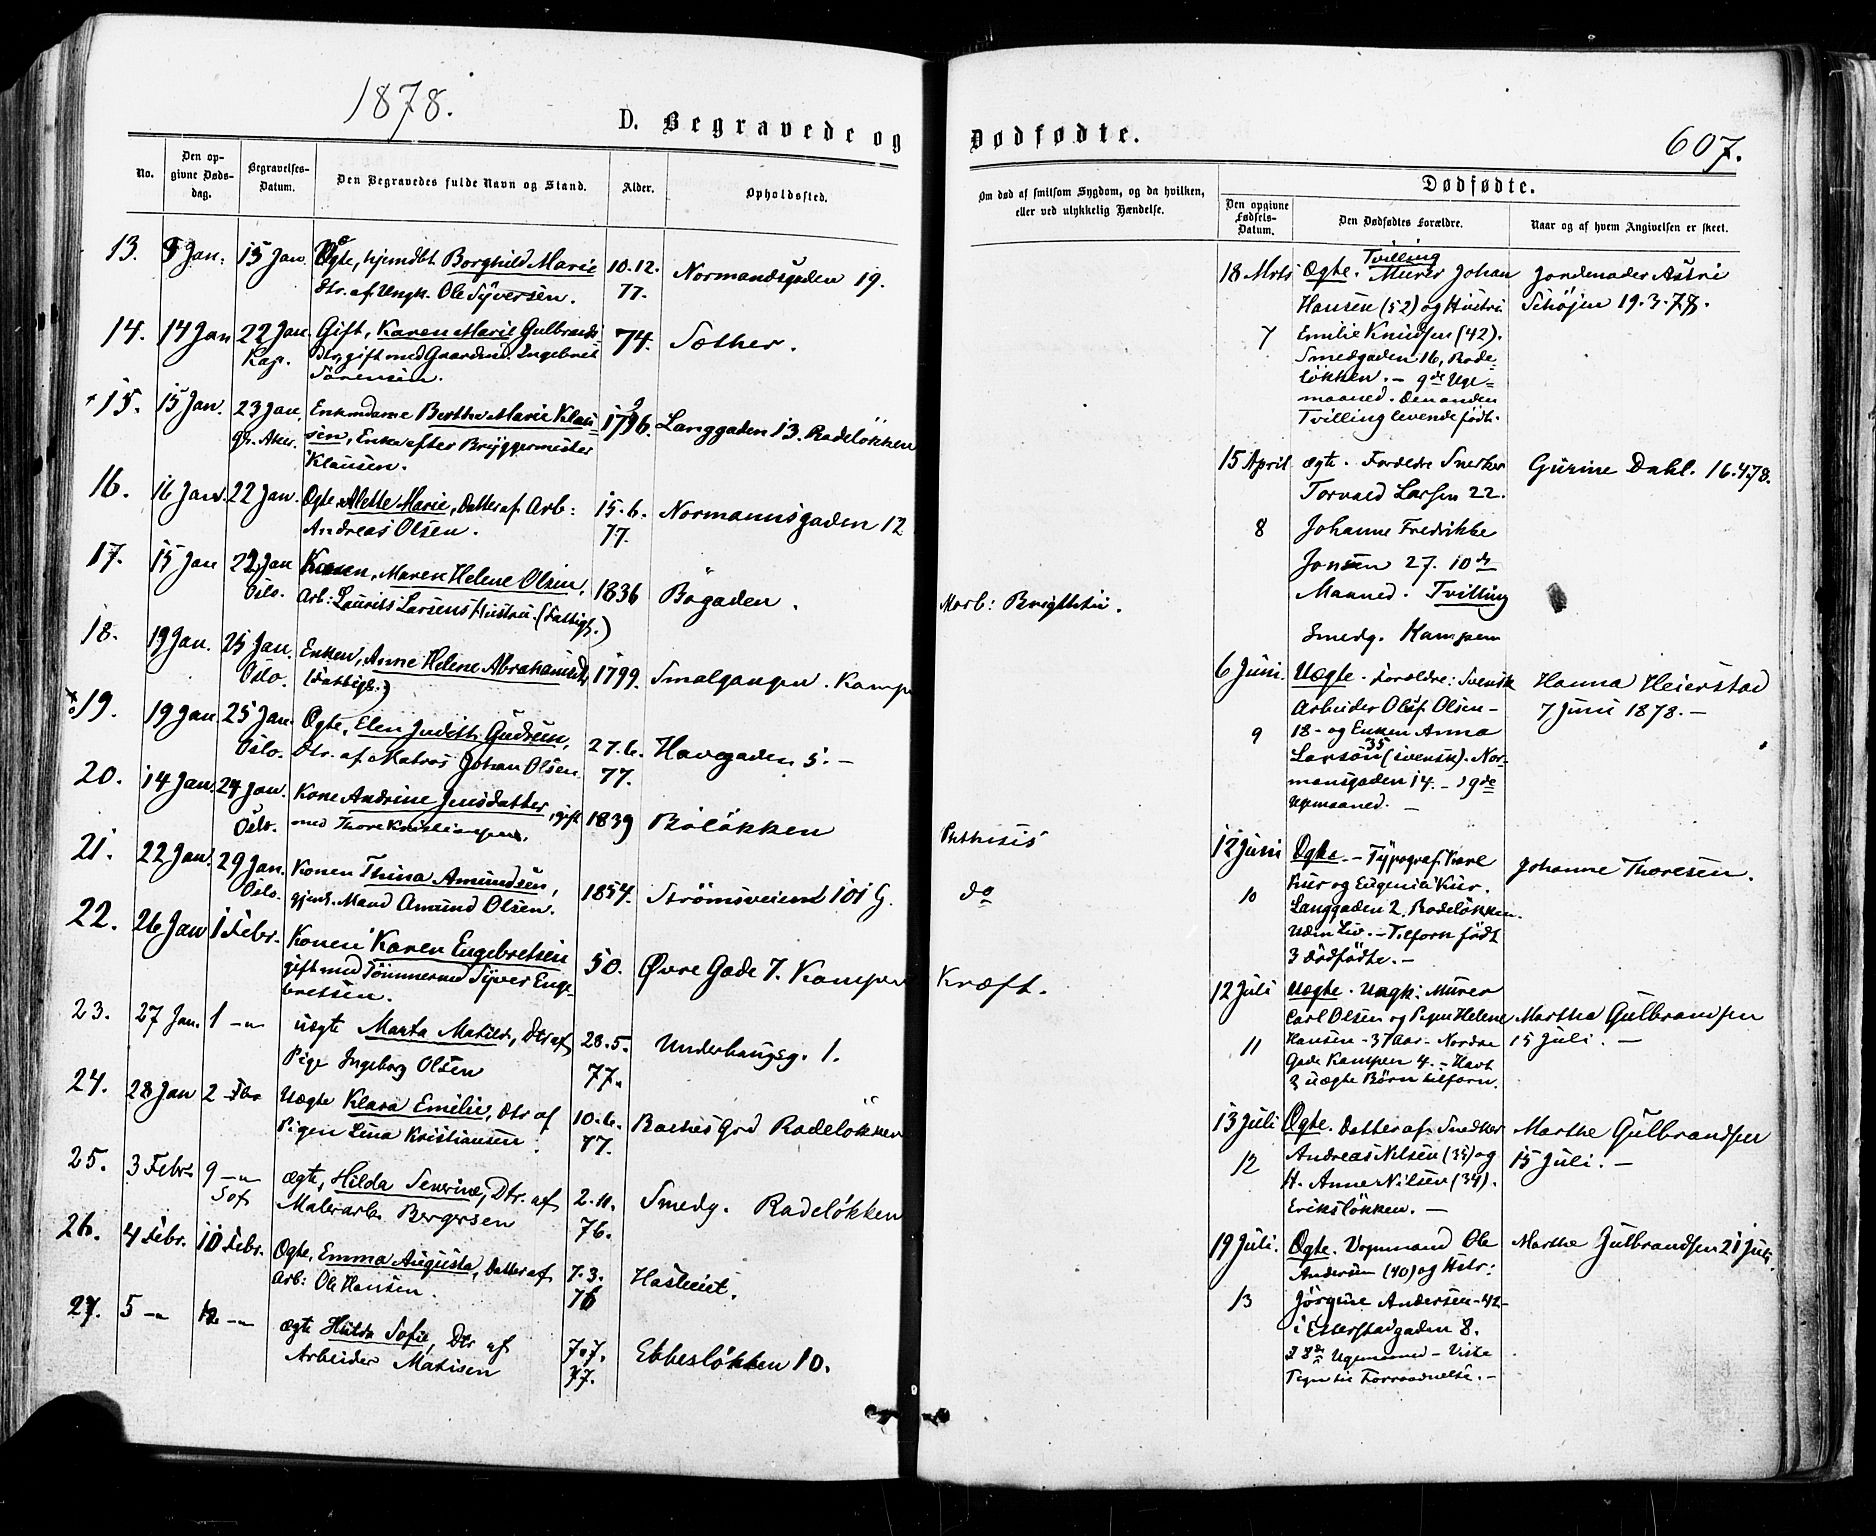 1878.
D. Begravede og
No.
Den op-
givne Døds-
dag.
Begravelses-
Datum.
Den Begravedes fulde Navn og Stand.
Alder.
Opholdssted.
13. 8 Jan. 15 Jan. Ægte, hjemdbt Borghild Marie 10.12. Normandsgaden 19.
Dtr. af Ungk. Ole Syversen. 77.
14. 14 Jan 22 Jan. Gift, Karen Marie Gulbrands- 74. Sæther.
Kap. Dtr, gift med Gaardmd. Ingebret
Sörensen.
15. 15 Jan. 23 Jan. Enkemadame Berthe Marie Klau- 1796. Langgaden 13. Rodeløkken
gr. Aker. sen, Enke efter Bryggermester
Klausen.
16. 16 Jan. 22 Jan. Ægte, Alette Marie, Datter af Arb: 15.6. Normannsgaden 12
Andreas Olsen. 77.
17. 15 Jan 22 Jan Konen, Maren Helene Olsen, 1836 Bögaden.
Oslo. Arb: Laurits Larsens Hustru. (Fattigl.)
18. 19 Jan. 25 Jan. Enken, Anne Helene Abrahamsd. 1799. Smalgangen. Kampen
Oslo. (Fattigl.)
19. 19 Jan. 25 Jan. Ægte, Elen Judith Gudrun, 27.6. Havegaden 5. —
Oslo. Dtr. af Matros Johan Olsen. 77.
20. 14 Jan. 24 Jan. Kone Andrine Jensdatter, gift 1839 Böløkken
Oslo. med Thore Kristiansen.
21. 22 Jan. 29 Jan. Konen Thina Amundsen, 1854. Strömsveien 101 G.
Oslo. gjenl. Mand Amund Olsen.
22. 26 Jan 1 Febr. Konen Karen Engebretsen 50. Øvre Gade 7. Kampen
gift med Tömmermd Syver Enge-
bretsen.
23. 27 Jan. 1 —"— uægte Marta Matilde, Dtr af 28.5. Underhaugsg. 1.
Pige Ingeborg Olsen 77.
24. 28 Jan 2 Fbr Uægte Klara Emilie, Dtr af 10.6. Backes Grd Rodeløkken
Pigen Lina Kristiansen. 77.
25. 3 Febr. 9 —"— ægte, Hilda Severine, Dtr. af 2.11. Smedg. Rodeløkken
Sof Malerarb. Bergersen 76.
26. 4 Febr. 10 Febr. Ægte, Emma Augusta, Datter af 7.3. Hasleiet.
Arb: Ole Hansen. 76
27. 5 —"— 12 —"— ægte Hulda Sofie, Dtr af 7.7. Ebbesløkken 10.
Arbeider Matisen 77.
Dødfødte.
607.
Om død af smitsom Sygdom, og da hvilken,
eller ved ulykkelig Hændelse.
Dødfødte.
Den opgivne
Fødsels-
Datum.
Den Dødfødtes Forældre.
Naar og af hvem Angivelsen er skeet.
Morb: Brigthii.
Phthisis
do
Kræft.
Tvilling
18 Mrts Ægte. Murer Johan Jordemoder Astri
Hansen (52) og Hustru Schöjen 19.3.78.
7 Emilie Knudsen (42).
Smedgaden 16, Rode-
løkken. — 9de Uge-
maaned. Den anden
Tvilling levende født.
15 April ægte. Forældre Snekker Gurine Dahl. 16.4.78.
Torvald Larsen 22.
8 Johanne Fredrikke
Jonsen 27. 10de
Maaned. Tvilling
Smedg. Kampen
6 Juni. Uægte. Forældre: Svensk Hanna Heierstad
Arbeider Olof Olsen — 7 Juni 1878. —
9 18 — og Enken Anna
Larson 35 (svensk). Nor-
mansgaden 14. — 9de
Ugemaaned. —
12 Juni Ægte. — Typograf Karl Johanne Thoresen.
10 Kur og Eugenie Kur.
Langgaden 2. Rodeløkken.
Uden Liv. — Tilforn født
3 dödfödte. —
12 Juli Uægte. Ungk: Murer
Carl Olsen og Pigen Helene Martha Gulbrandsen
11 Hansen — 37 Aar — Nordre 15 Juli. —
Gade Kampen 4. — Havt
2 uægte Børn tilforn.
13 Juli Ægte. Datter af Snedker Marthe Gulbrandsen
12 Andreas Nilsen (35) og 15 Juli. —
H. Anne Nilsen (34).
Eriksløkken. —
19 Juli. Ægte. Vognmand Ole Marthe Gulbrandsen 21 Juli.
Andersen (40) og Hstr:
13 Jörgine Andersen — 42 —
i Etterstadgaden 8.
I 8de Ugemaaned — Viste
Tegn til Forraadnelse. —